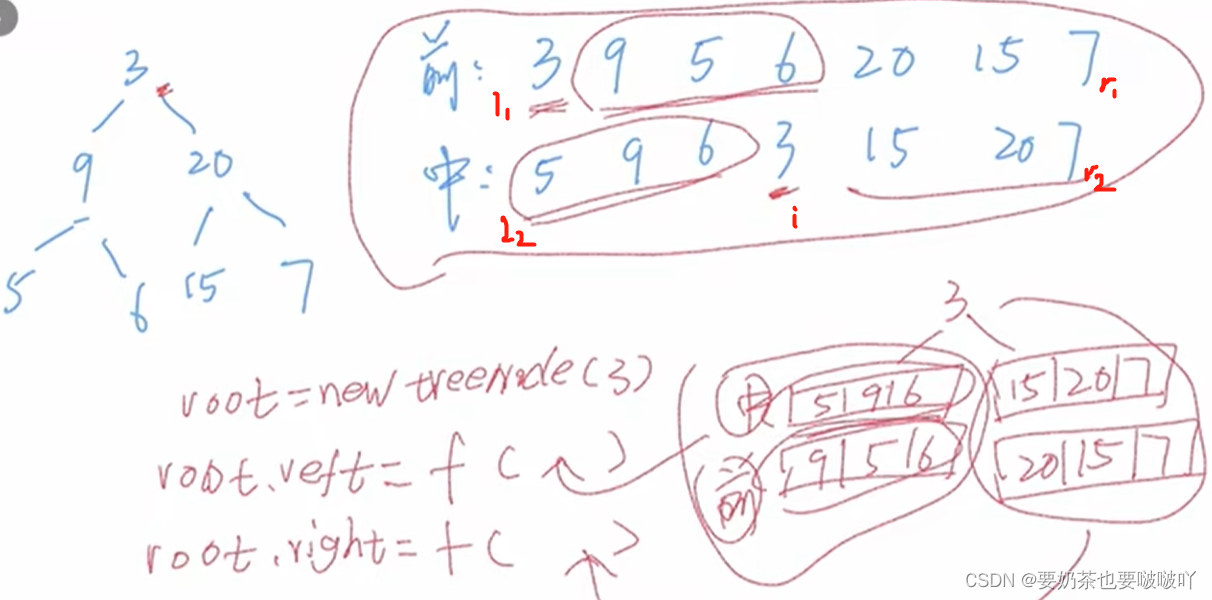 3
9 20
5 6 15 7
前: 3 9 5 6 20 15 7
l₁ r₁
中: 5 9 6 3 15 20 7
l₂ i r₂
3
root=new treenode(3)
中 5 9 6 15 20 7
root.veft= f( )
前 9 5 6 20 15 7
root.right= f( )
CSDN @要奶茶也要啵啵吖